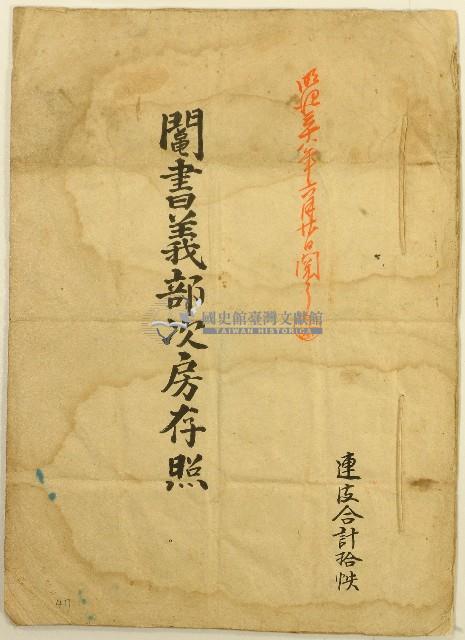 連皮合計拾帙
明治三十八年六月廿日閲了
䦰書義部次房存照
國史館臺灣文獻館
TAIWAN HISTORICA
47